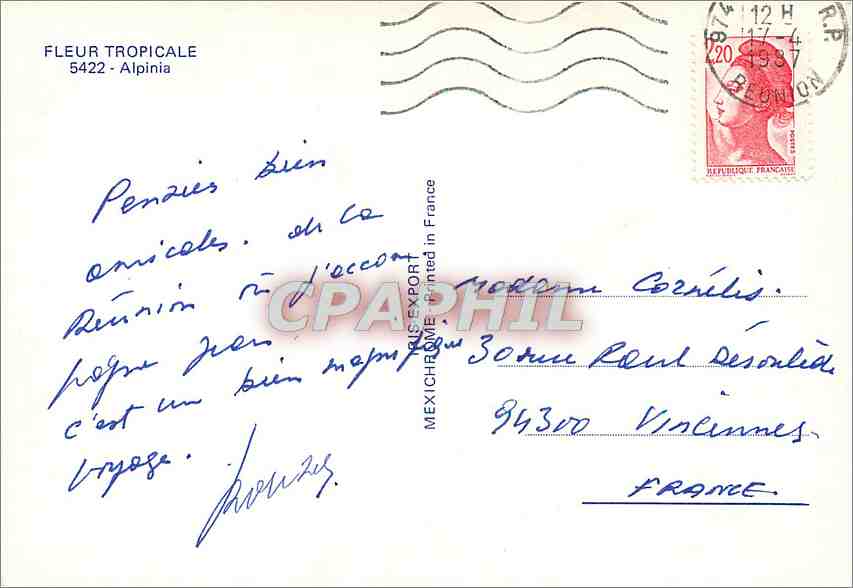 FLEUR TROPICALE
5422 - Alpinia
974
R.P.
12 H
17-4
1987
REUNION
2,20
POSTES
REPUBLIQUE FRANÇAISE
Pensées bien
amicales. de la
Réunion où j'accom
pagne Jean
c'est un bien magnifique
voyage.
IRIS EXPORT
MEXICHROME - Printed in France
CPAPHIL
Madame Cornélis.
30 rue Paul Déroulède
94300 Vincennes
FRANCE